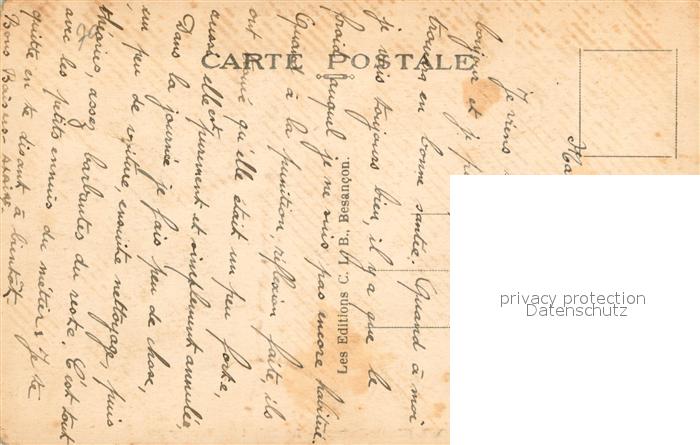 CARTE POSTALE
Les Editions C. L. B., Besançon.
privacy protection
Datenschutz
Ma
Je viens
bonjour et je
trouvera en bonne santée. Quand à moi
je vais toujours bien, il y a que le
froid auquel je ne suis pas encore habitué.
Quant à la punition, réflexion faite, ils
ont trouvé qu'elle était un peu forte,
aussi elle est purement et simplement annulée,
Dans la journée je fais peu de chose,
un peu de voiture ensuite nettoyage, puis
théories, assez barbantes du reste. C'est tout
avec les petits ennuis du métier. Je te
quitte en te disant à bientôt.
Bons Baisers